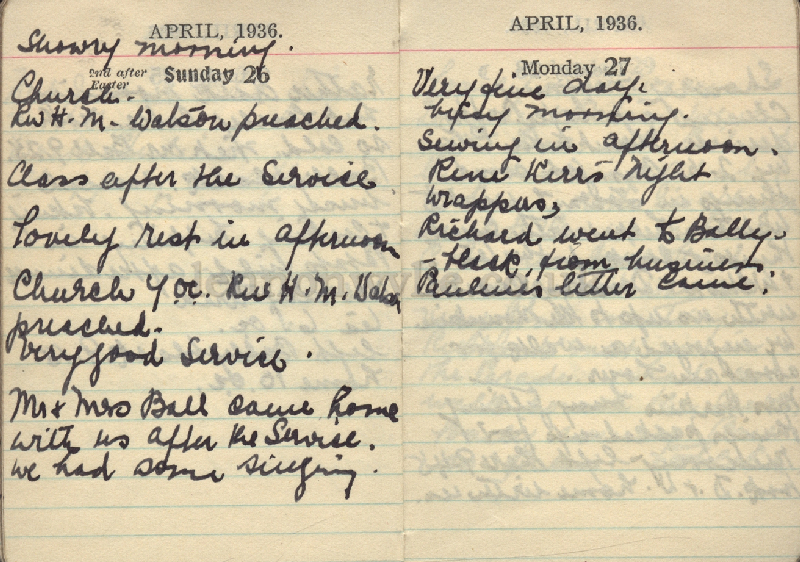 APRIL, 1936.
Showry morning.
2nd after
Easter
Sunday 26
Church.
Rev H. M. Watson preached.
Class after the Service
Lovely rest in afternoon
Church 7 oc. Rev H. M. Watson
preached.
Very good Service.
Mr & Mrs Ball came home
with us after the Service.
we had some singing.
APRIL, 1936.
Monday 27
Very fine day.
busy morning.
Sewing in afternoon.
Kerrs Night
Wrappers,
Richard went to Bally-
-hack, from business.
letter came.